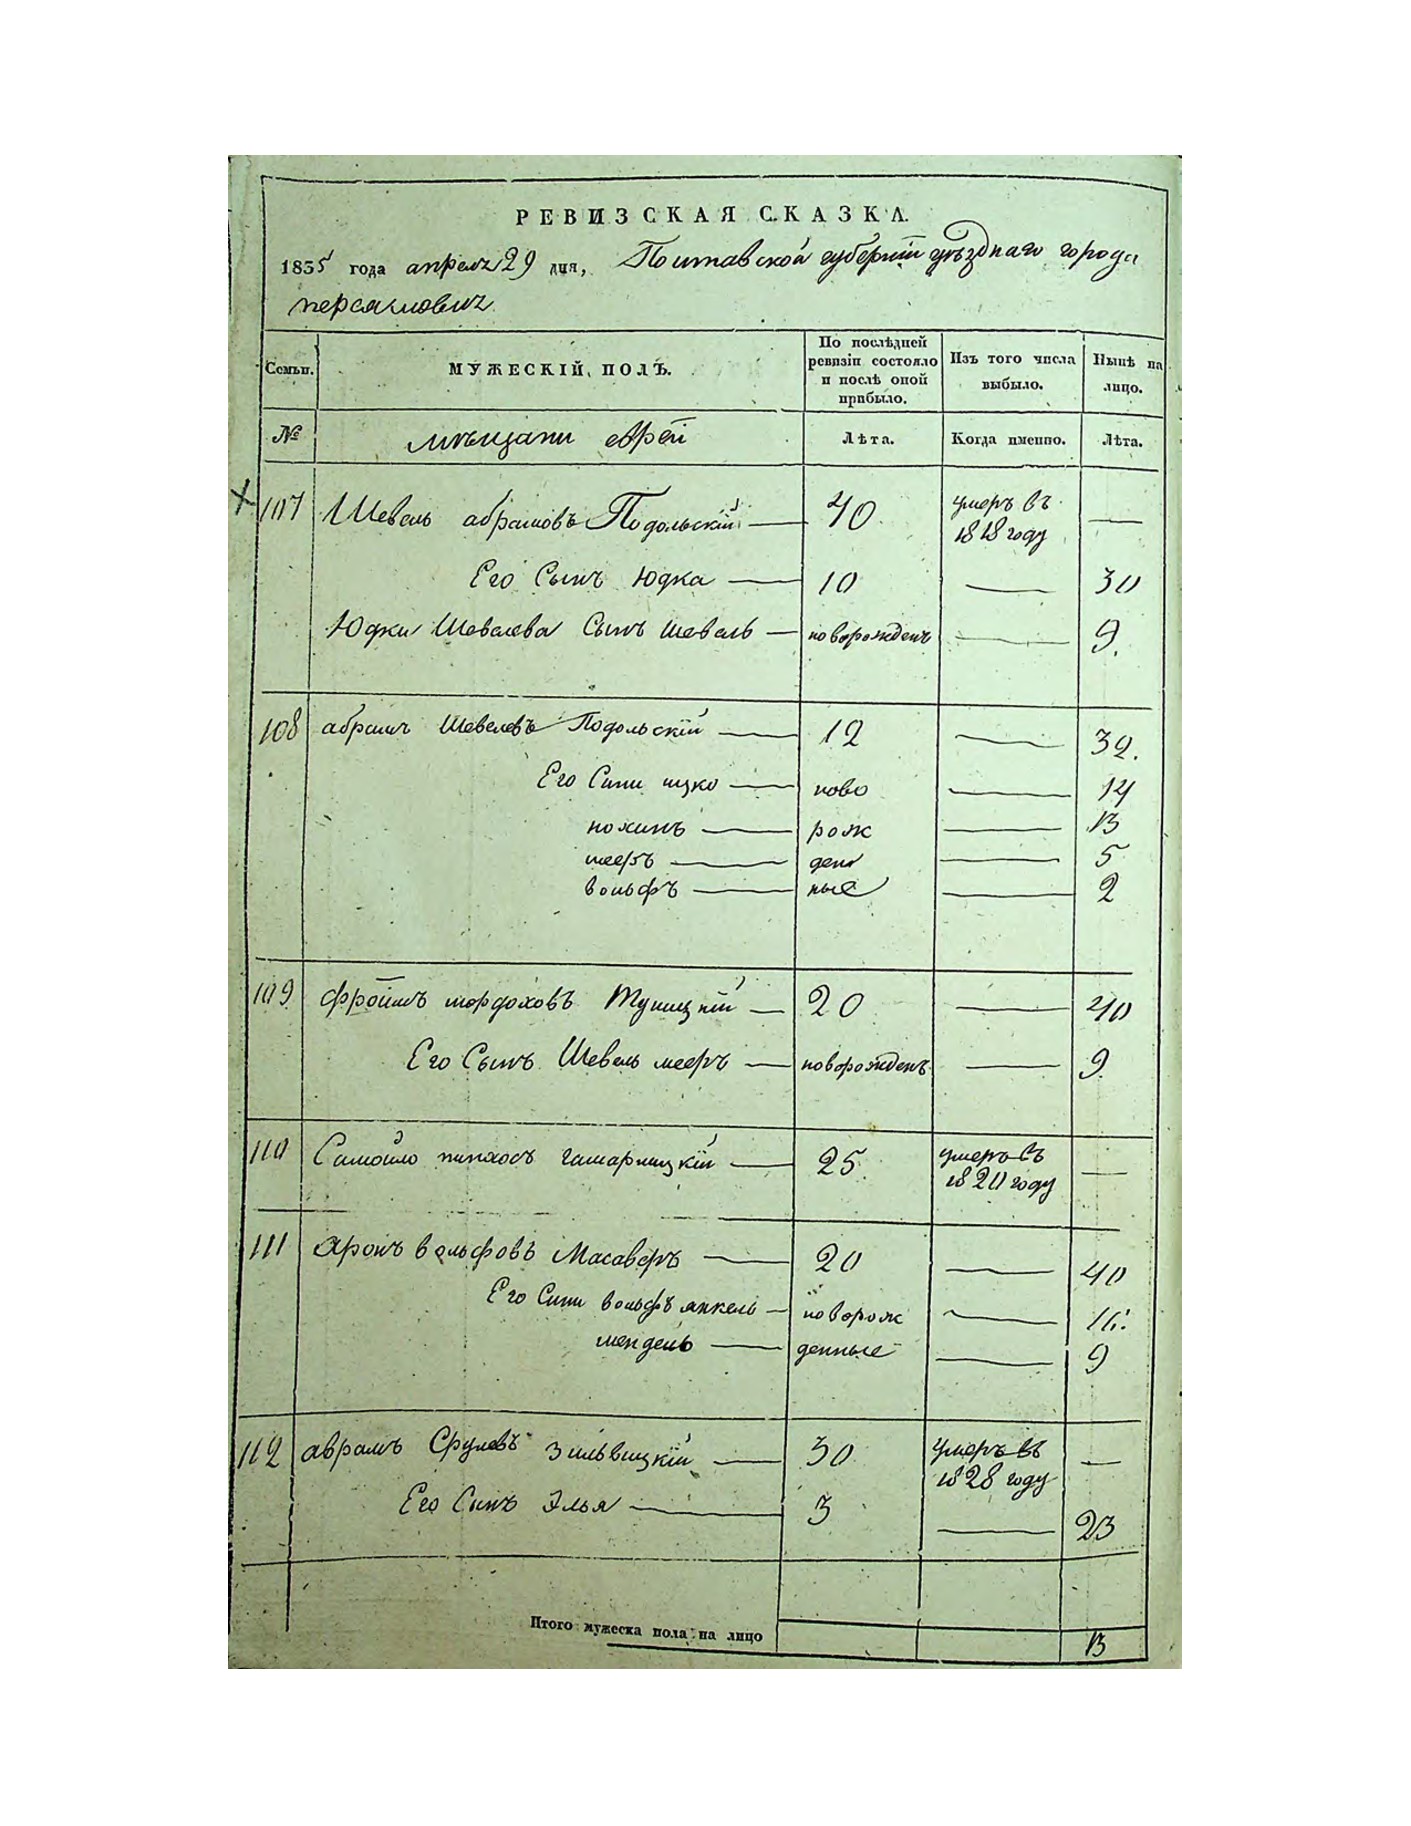 РЕВИЗСКАЯ СКАЗКА.
1835 года апреля 29 дня, Полтавской губернiи уѣзднаго города
переяславля
Семьи. МУЖЕСКIЙ ПОЛЪ. По послѣдней ревизiи состояло и послѣ оной прибыло. Изъ того числа выбыло. Нынѣ на лицо.
№ мѣщани еврей Лѣта. Когда именно. Лѣта.
107 Шевель абрамовъ Подольскiй 40 умеръ въ 1818 году —
Его Сынъ Юдка 10 — 30
Юдки Шевелева Сынъ шевель новорожденъ — 9.
108 абрамъ Шевелевъ Подольскiй 12 — 32.
Его Сини ицко ново — 14
нохимъ рож — 13
мееръ ден — 5
вольфъ ные — 2
109 фроимъ мордоховъ 20 — 40
Его Сынъ Шевель мееръ новорожденъ — 9.
110 Самойло пинхосъ 25 умеръ въ 1820 году —
111 аронъ вольфовъ Масаверъ 20 — 40
Его Сини вольфъ янкель новорож — 16.
мендель денные — 9
112 аврамъ Срулевъ 30 умеръ въ 1828 году —
Его Синъ Элья 3 — 23
Итого мужеска пола на лицо 13